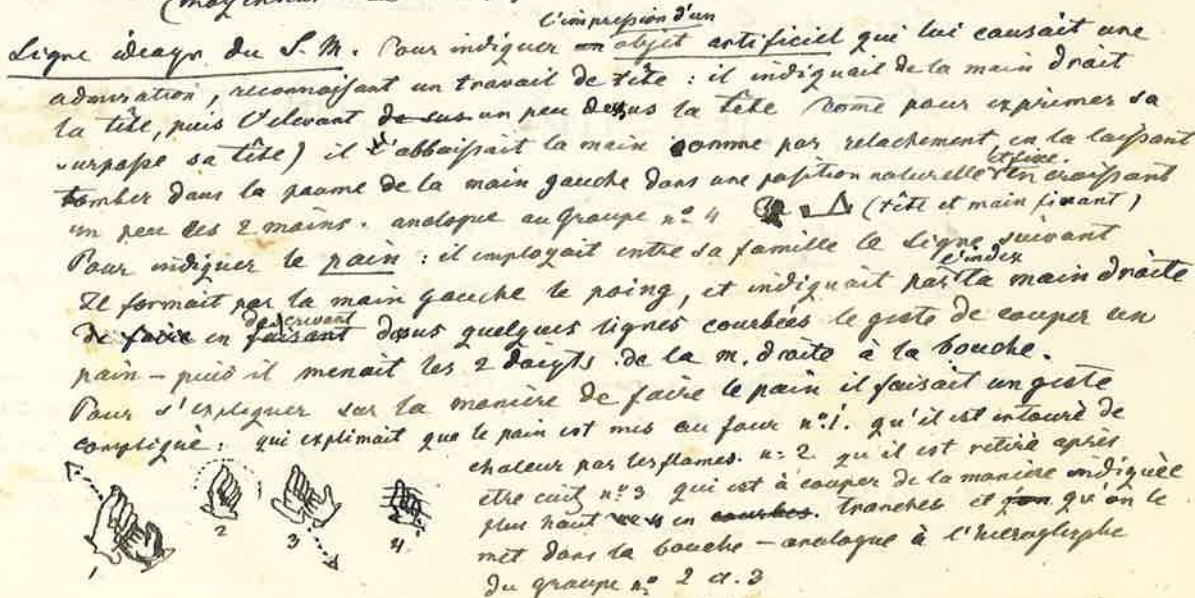 l'impression d'un
Signe ideogr du S. M. Pour indiquer un objet artificiel qui lui causait une
admiration, reconnaissant un travail de tête : il indiquait de la main droit
la tête, puis l'elevant de sus un peu dessus la tête come pour exprimer sa
surpasse sa tête) il l'abbaissait la main comme par relachement, en la laissant
tomber dans la paume de la main gauche dans une position naturelle et fixe. en croissant
un peu les 2 mains. analogue au groupe nº 4 (tête et main fixant)
Pour indiquer le pain : il employait entre sa famille le signe suivant
Il formait par la main gauche le poing, et indiquait par l'index la main droite
de faire en faisant descrivant dessus quelques lignes courbées le geste de couper un
pain – puis il menait les 2 doigts de la m. droite à la bouche.
Pour s'expliquer sur la manière de faire le pain il faisait un geste
compliqué : qui explimait que le pain est mis au four nº 1. qu'il est entouré de
chaleur par les flames. n: 2. qu'il est retiré après
etre cuit nº 3 qui est à couper de la maniere indiquée
plus haut en courbes. tranches et qu'on le
met dans la bouche – analogue à l'hieroglyphe
du groupe nº 2 et. 3
1 2 3 4